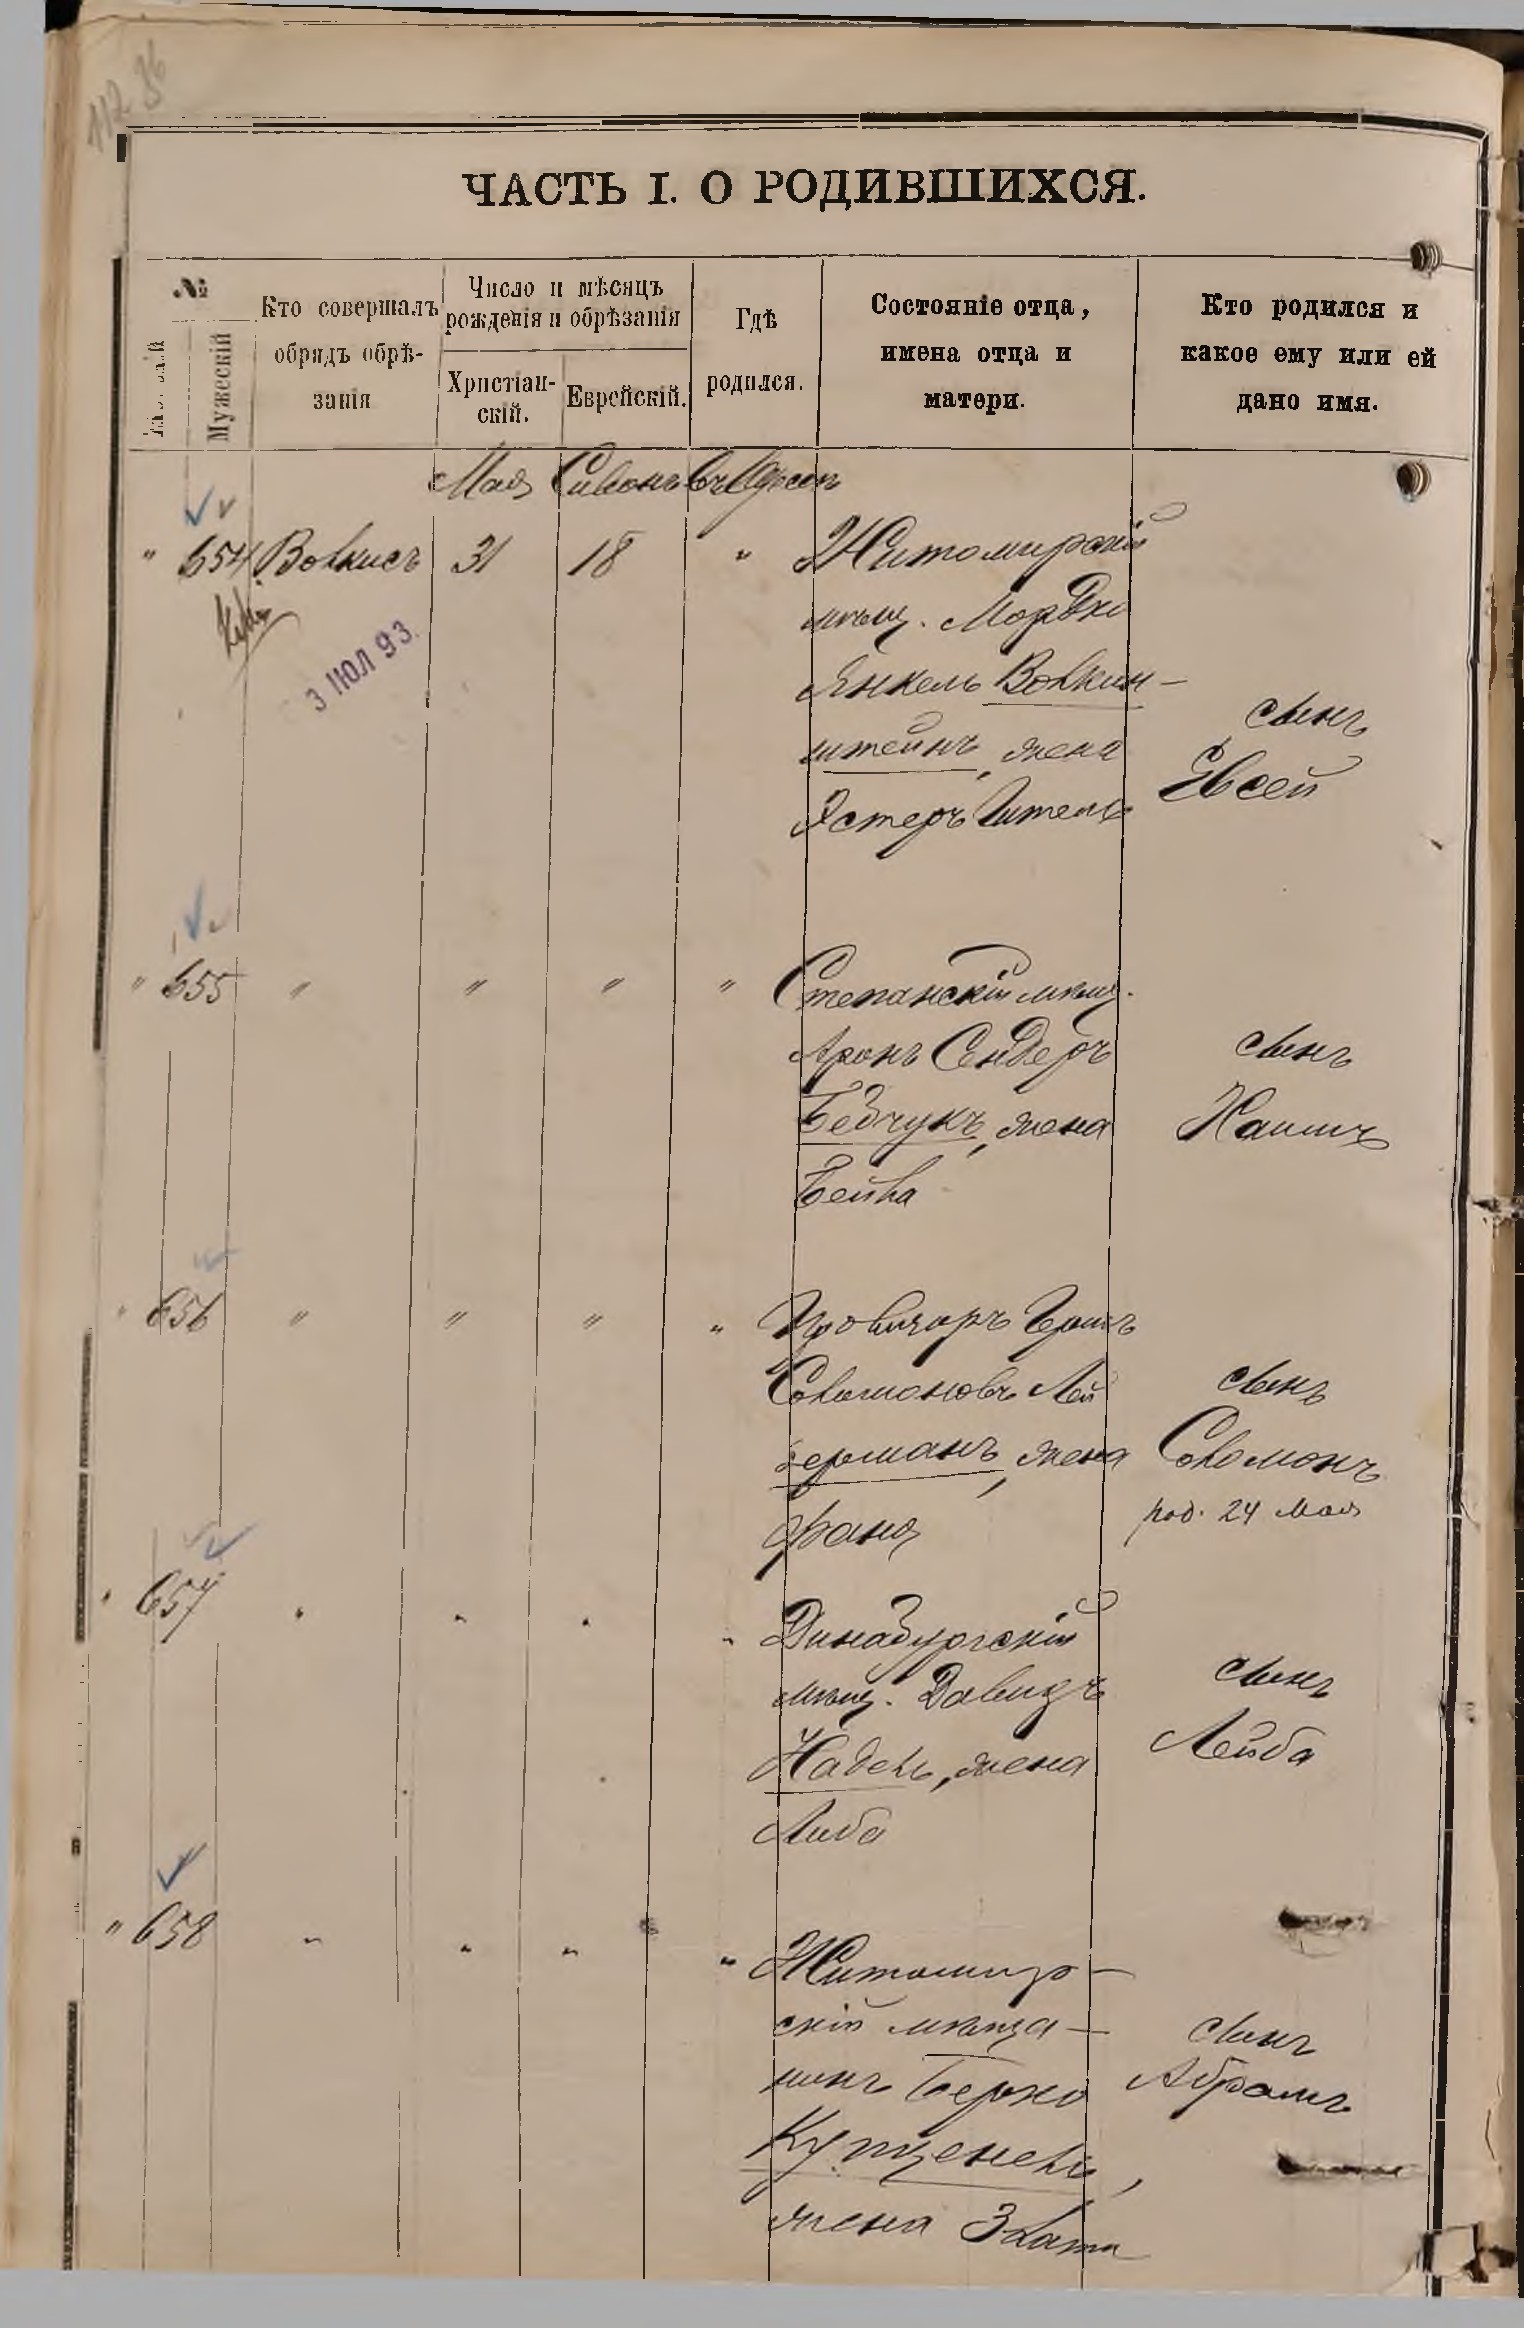 112 36
ЧАСТЬ I. О РОДИВШИХСЯ.
№
Мужескій
Кто совершалъ
обрядъ обрѣ-
занія
Число и мѣсяцъ
рожденія и обрѣзанія
Христіан-
скій.
Еврейскій.
Гдѣ
родился.
Состояніе отца,
имена отца и
матери.
Кто родился и
какое ему или ей
дано имя.
Мая Сивонъ въ Одессѣ
" 654 Вовкисъ 31 18 " Житомирскій
мѣщ. Мордко
Янкель Вовкин-
штейнъ, жена
Эстеръ Гитель
сынъ
Евсей
3 ІЮЛ 93.
" 655 " " " " Степанскій мѣщ.
Аронъ Сендеръ
Бебчукъ, жена
Бейва
сынъ
Хаимъ
" 656 " " " " Провизоръ Гершъ
Соломоновъ Лей
берманъ, жена
Фаня
сынъ
Соломонъ
род. 24 Мая
" 657 " " " " Динабургскій
мѣщ. Давидъ
Надель, жена
Либа
сынъ
Лейба
" 658 " " " " Житомир-
скій мѣща-
нинъ Берко
Купценель,
жена Злата
сынъ
Абрамъ